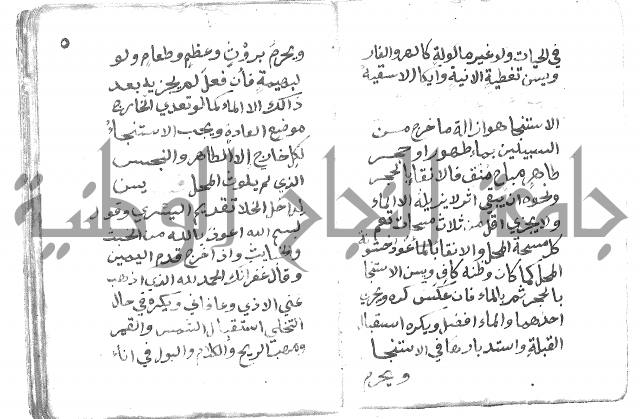 في الحيات ولا غير مالولة كالهر والفار
ويسن تغطية الانية وايكا الاسقية
الاستنجا هو ازالة ما خرج من
السبيلين بماء طهور او حجر
طاهر مباح منق فالانقا بالحجر
ونحوه ان يبقى اثر لا يزيله الا الماء
ولا يجزي اقل من ثلاث مسحات تعم
كل مسحة المحل والانقا بالماء عود خشونة
المحل كما كان وظنه كاف ويسن الاستنجا
بالحجر ثم بالماء فان عكس كره ويجزي
احدهما والماء افضل ويكره استقبال
القبلة واستدبارها في الاستنجا
ويحرم
٥
ويحرم بروث وعظم وطعام ولو
لبهيمة فان فعل لم يجزيه بعد
ذالك الا الماء كما لو تعدى الخارج
موضع العادة ويجب الاستنجاء
لكل خارج الا الطاهر والنجس
الذي لم يلوث المحل يسن
لداخل الخلا تقديم اليسرى وقول
بسم الله اعوذ بالله من الخبث
والخبايث واذا خرج قدم اليمين
وقال غفرانك الحمد لله الذي اذهب
عني الاذي وعافاني ويكره في حال
التخلي استقبال الشمس والقمر
ومهب الريح والكلام والبول في اناء
جامعة النجاح الوطنية